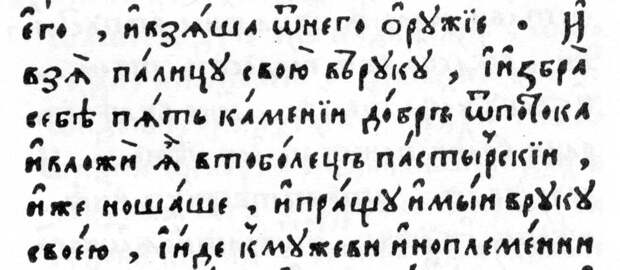 є҆го̀ , и҆взѧ́ша ѿнего ѻ҆рꙋ́жїе . И҆
взѧ̀ па́лицꙋ свою̀ въ́рꙋкꙋ , і҆и҆збра̀
себѣ̀ пѧ́ть ка́менїи до́брѣ ѿпото́ка
и҆вложѝ ѧ҆̀ втобо́лецъ па́стырскїи ,
и҆́же ноша́ше , и҆пра́щꙋ и҆мы́и врꙋкꙋ
свое́ю , і҆и́де кмꙋ́жеви и҆ноплеме́нни